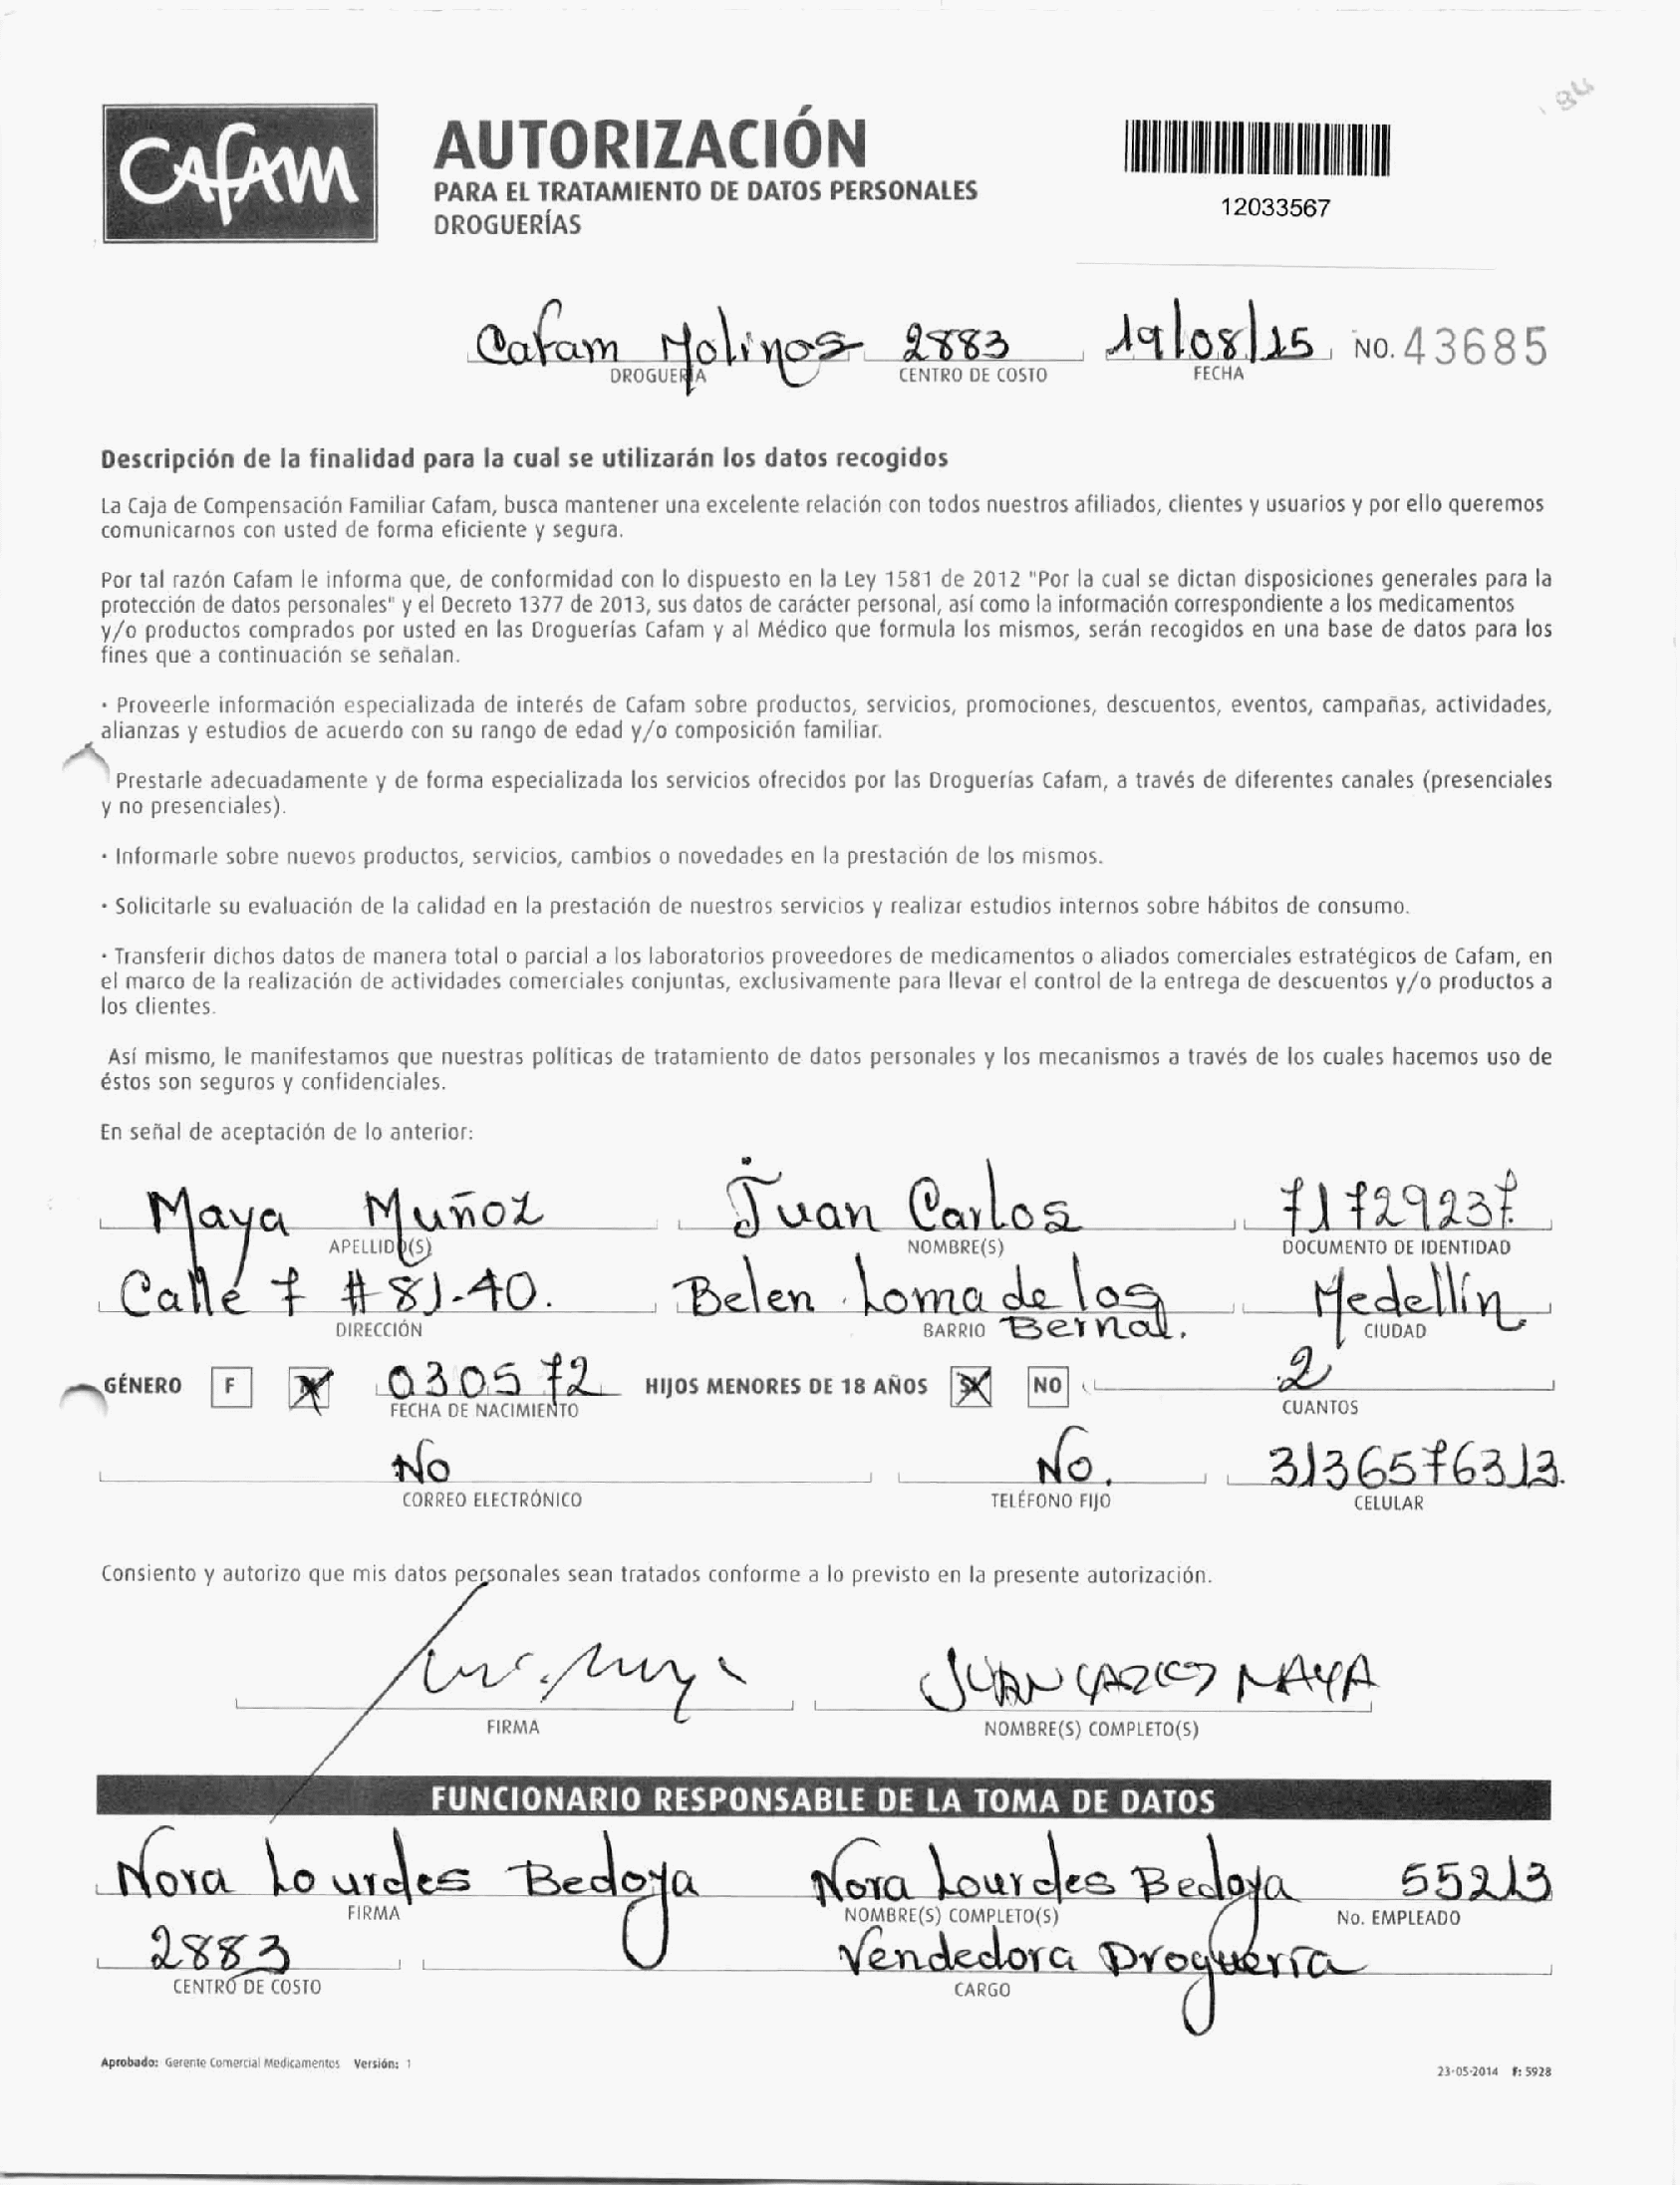 84
Cafam
AUTORIZACIÓN
PARA EL TRATAMIENTO DE DATOS PERSONALES
DROGUERÍAS
12033567
Cafam Molinos 2883 19/08/15 NO. 43685
DROGUERÍA CENTRO DE COSTO FECHA
Descripción de la finalidad para la cual se utilizarán los datos recogidos
La Caja de Compensación Familiar Cafam, busca mantener una excelente relación con todos nuestros afiliados, clientes y usuarios y por ello queremos
comunicarnos con usted de forma eficiente y segura.
Por tal razón Cafam le informa que, de conformidad con lo dispuesto en la Ley 1581 de 2012 "Por la cual se dictan disposiciones generales para la
protección de datos personales" y el Decreto 1377 de 2013, sus datos de carácter personal, así como la información correspondiente a los medicamentos
y/o productos comprados por usted en las Droguerías Cafam y al Médico que formula los mismos, serán recogidos en una base de datos para los
fines que a continuación se señalan.
· Proveerle información especializada de interés de Cafam sobre productos, servicios, promociones, descuentos, eventos, campañas, actividades,
alianzas y estudios de acuerdo con su rango de edad y/o composición familiar.
Prestarle adecuadamente y de forma especializada los servicios ofrecidos por las Droguerías Cafam, a través de diferentes canales (presenciales
y no presenciales).
· Informarle sobre nuevos productos, servicios, cambios o novedades en la prestación de los mismos.
· Solicitarle su evaluación de la calidad en la prestación de nuestros servicios y realizar estudios internos sobre hábitos de consumo.
· Transferir dichos datos de manera total o parcial a los laboratorios proveedores de medicamentos o aliados comerciales estratégicos de Cafam, en
el marco de la realización de actividades comerciales conjuntas, exclusivamente para llevar el control de la entrega de descuentos y/o productos a
los clientes.
Así mismo, le manifestamos que nuestras políticas de tratamiento de datos personales y los mecanismos a través de los cuales hacemos uso de
éstos son seguros y confidenciales.
En señal de aceptación de lo anterior:
Maya Muñoz Juan Carlos 71729237.
APELLIDO(S) NOMBRE(S) DOCUMENTO DE IDENTIDAD
Calle 7 # 81-40. Belen Loma de los Medellín
Bernal.
DIRECCIÓN BARRIO CIUDAD
GÉNERO F M 030572 HIJOS MENORES DE 18 AÑOS SI NO 2
FECHA DE NACIMIENTO CUANTOS
No No. 3136576313.
CORREO ELECTRÓNICO TELÉFONO FIJO CELULAR
Consiento y autorizo que mis datos personales sean tratados conforme a lo previsto en la presente autorización.
JUAN CARLOS MAYA
FIRMA NOMBRE(S) COMPLETO(S)
FUNCIONARIO RESPONSABLE DE LA TOMA DE DATOS
Nora Lourdes Bedoya Nora Lourdes Bedoya 55213
FIRMA NOMBRE(S) COMPLETO(S) No. EMPLEADO
2883 Vendedora Droguería
CENTRO DE COSTO CARGO
Aprobado: Gerente Comercial Medicamentos Versión: 1
23-05-2014 F: 5928